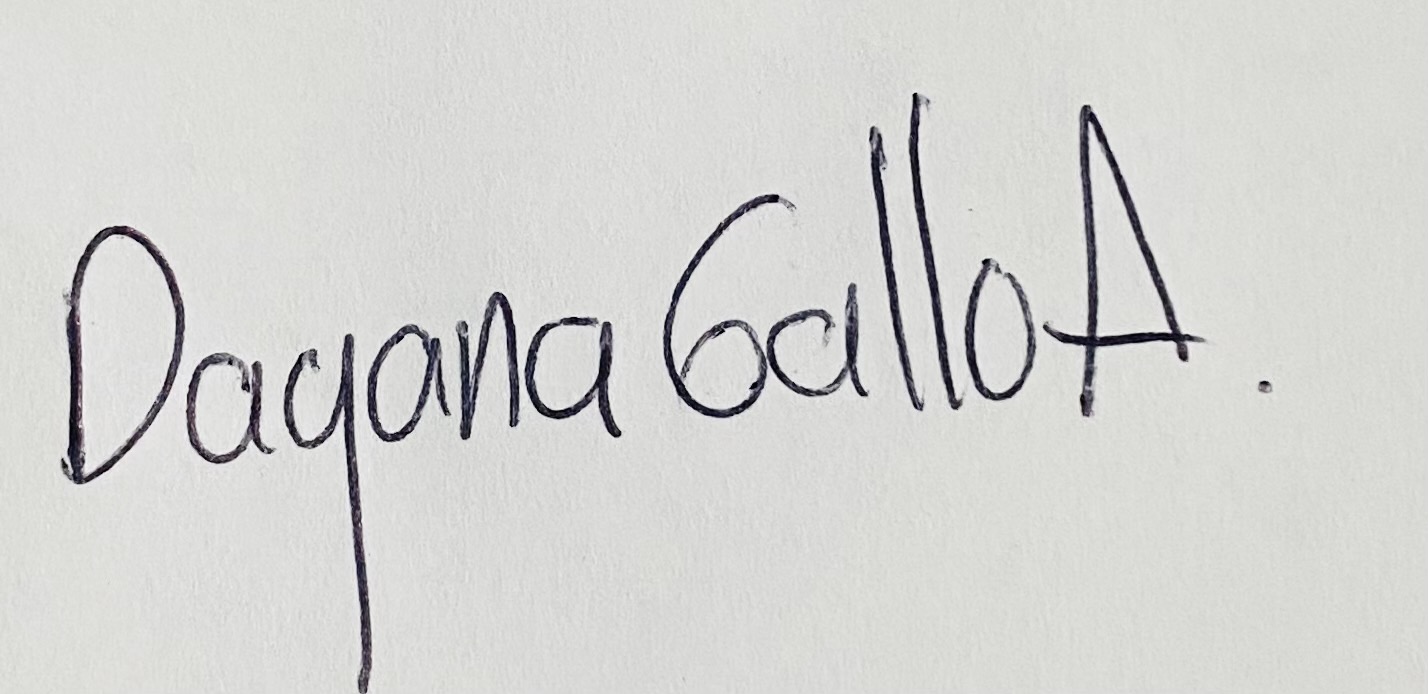 Dayana Gallo A.